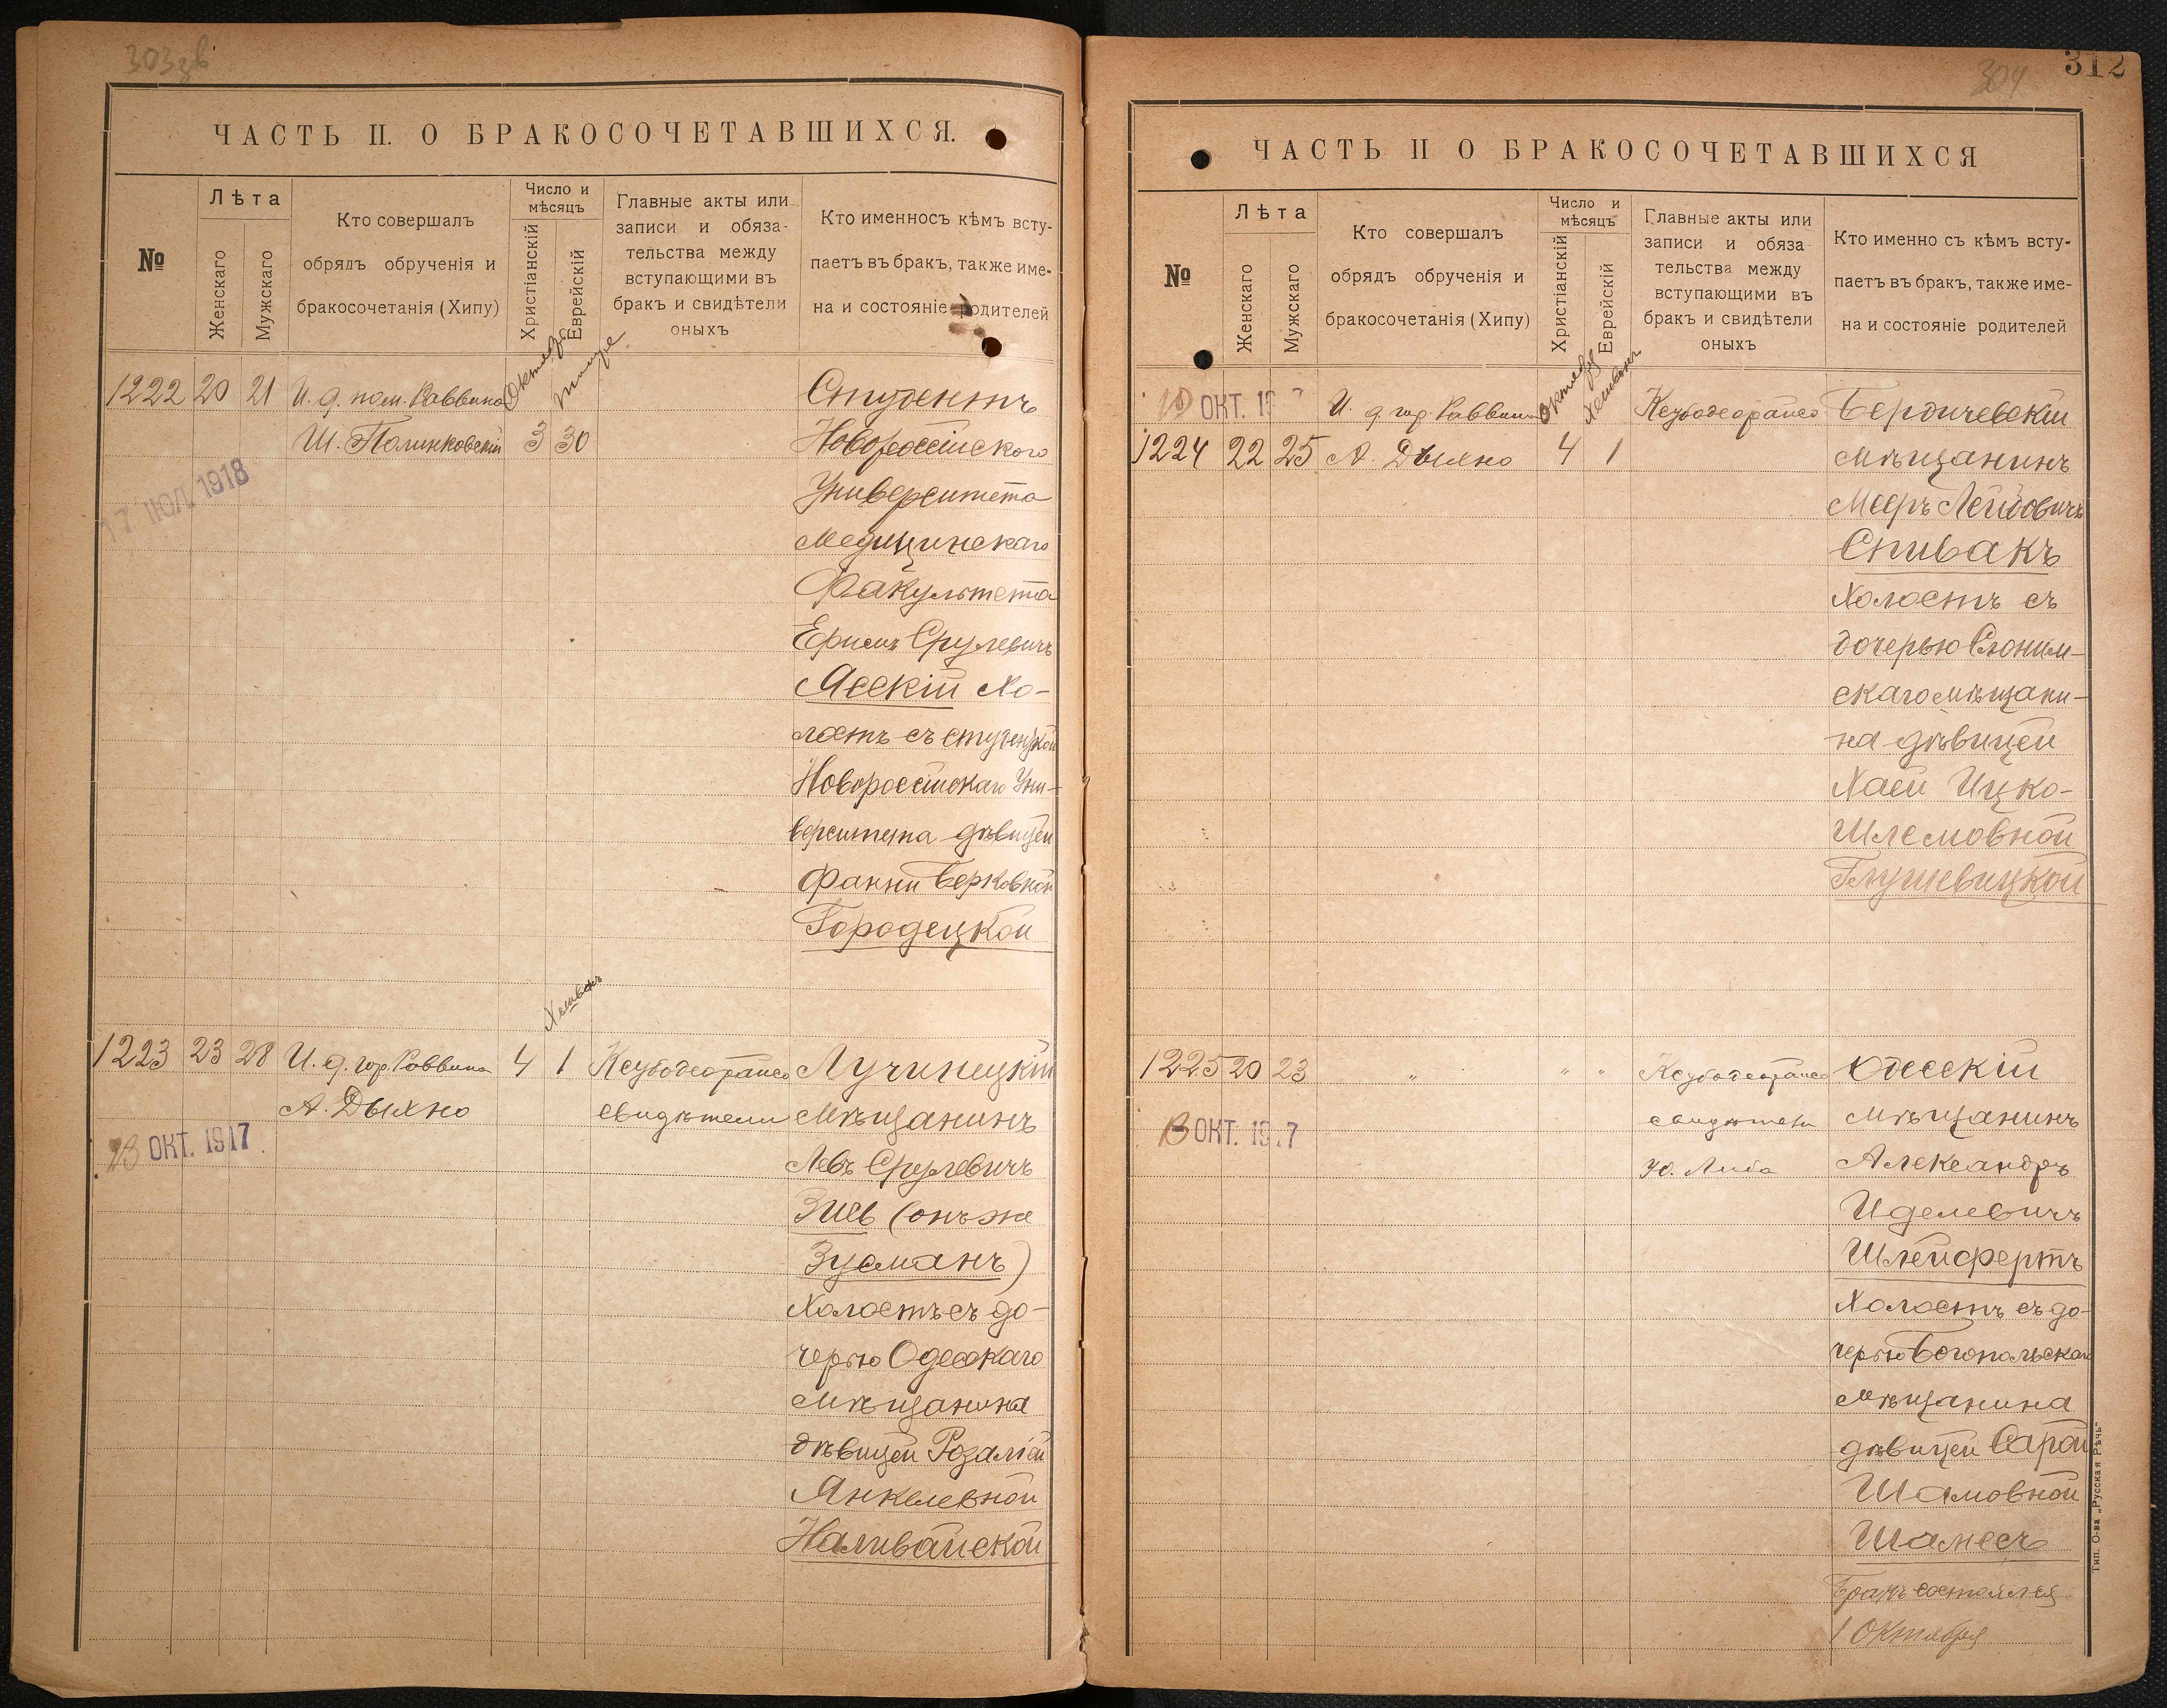 303зв
ЧАСТЬ II. О БРАКОСОЧЕТАВШИХСЯ.
№
Лѣта
Женскаго
Мужскаго
Кто совершалъ
обрядъ обрученія и
бракосочетанія (Хипу)
Число и
мѣсяцъ
Христіанскій
Еврейскій
Главные акты или
записи и обяза-
тельства между
вступающими въ
бракъ и свидѣтели
оныхъ
Кто именносъ кѣмъ всту-
паетъ въ бракъ, также име-
на и состояніе родителей
Октябрь
Тишре
1222 20 21 И. д. пом. Раввина
Ш. Полинковскій 3 30
17 ІЮЛ 1918
Студентъ
Новороссійского
Университета
Медицинскаго
Факультета
Срулевичъ
Ясскій Хо-
лостъ съ студенткой
Новороссійскаго Уни-
верситета дѣвицей
Фанни Берковной
Городецкой
Хешвонъ
1223 23 28 И. д. гор. Раввина 4 1
А. Дыхно
13 ОКТ. 1917
свидѣтели
Лучинецкій
Мѣщанинъ
Левъ Срулевичъ
Зисъ (онъ же
Зусманъ)
Холостъ съ до-
черью Одесскаго
Мѣщанина
дѣвицей Розаліей
Янкелевной
Наливайской
304
312
ЧАСТЬ II О БРАКОСОЧЕТАВШИХСЯ
№
Лѣта
Женскаго
Мужскаго
Кто совершалъ
обрядъ обрученія и
бракосочетанія (Хипу)
Число и
мѣсяцъ
Христіанскій
Еврейскій
Главные акты или
записи и обяза
тельства между
вступающими въ
бракъ и свидѣтели
оныхъ
Кто именно съ кѣмъ всту-
паетъ въ бракъ, также име-
на и состояніе родителей
Октября
Хешвонъ
10 ОКТ. 19 7
И. д. гор Раввина
1224 22 25 А. Дыхно 4 1
Бердичевскій
мѣщанинъ
Мееръ Лейбовичъ
Спивакъ
Холостъ съ
дочерью Слоним-
скаго мѣщани-
на дѣвицей
Хаей Ицко-
Шлемовной
Глушевицкой
1225 20 23 " " "
13 ОКТ. 1917
свидѣтели
Ю. Либа
Одесскій
мѣщанинъ
Александръ
Иделевичъ
Шлейфертъ
Холостъ съ до-
черью Богопольскаго
мѣщанина
дѣвицей Сарой
Шамовной
Шамесъ
Бракъ состоялся
1 Октября
Тип. О-ва „Русская Рѣчь"